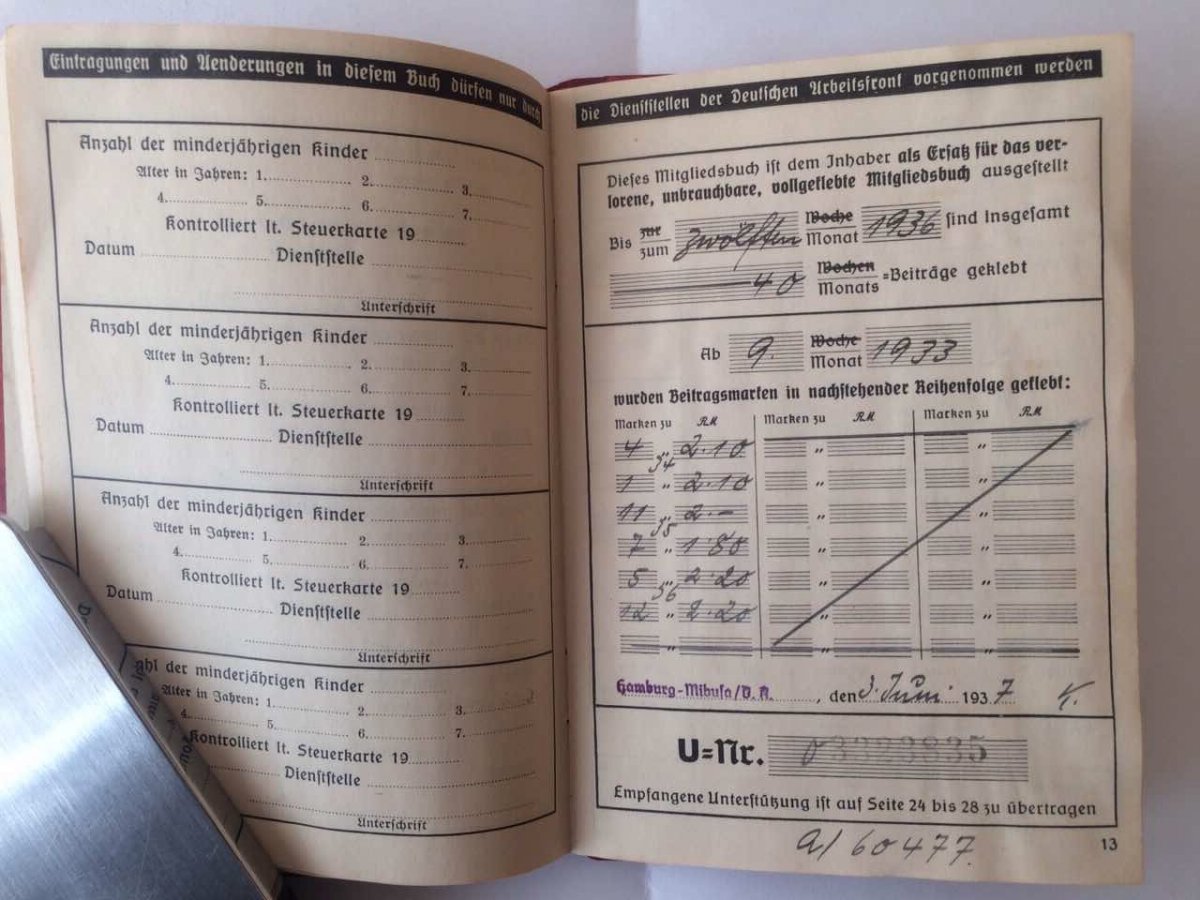 Eintragungen und Aenderungen in diesem Buch dürfen nur durch
Anzahl der minderjährigen Kinder
Alter in Jahren: 1. 2. 3.
4. 5. 6. 7.
Kontrolliert lt. Steuerkarte 19
Datum Dienststelle
Unterschrift
Anzahl der minderjährigen Kinder
Alter in Jahren: 1. 2. 3.
4. 5. 6. 7.
Kontrolliert lt. Steuerkarte 19
Datum Dienststelle
Unterschrift
Anzahl der minderjährigen Kinder
Alter in Jahren: 1. 2. 3.
4. 5. 6. 7.
Kontrolliert lt. Steuerkarte 19
Datum Dienststelle
Unterschrift
ahl der minderjährigen Kinder
Alter in Jahren: 1. 2. 3.
4. 5. 6. 7.
Kontrolliert lt. Steuerkarte 19
Dienststelle
Unterschrift
die Dienststellen der Deutschen Arbeitsfront vorgenommen werden
Dieses Mitgliedsbuch ist dem Inhaber als Ersatz für das ver-
lorene, unbrauchbare, vollgeklebte Mitgliedsbuch ausgestellt
Bis zur zum zwölften Woche Monat 1936 sind insgesamt
40 Wochen Monats =Beiträge geklebt
Ab 9. Woche Monat 1933
wurden Beitragsmarken in nachstehender Reihenfolge geklebt:
Marken zu RM Marken zu RM Marken zu RM
4 " 2.10 " "
34
1 " 2.10 " "
11 " 2.- " "
35
7 " 1.80 " "
5 " 2.20 " "
36
12 " 2.20 " "
" " "
Hamburg-Mibusa/D.A., den 3. Juni 1937 K.
U=Nr. 03323835
Empfangene Unterstützung ist auf Seite 24 bis 28 zu übertragen
a/ 60477.
13